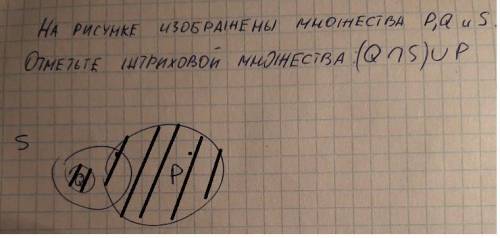 На рисунке изображены множества P, Q и S.
Отметьте штриховой множества (Q ∩ S) ∪ P
S
Q P